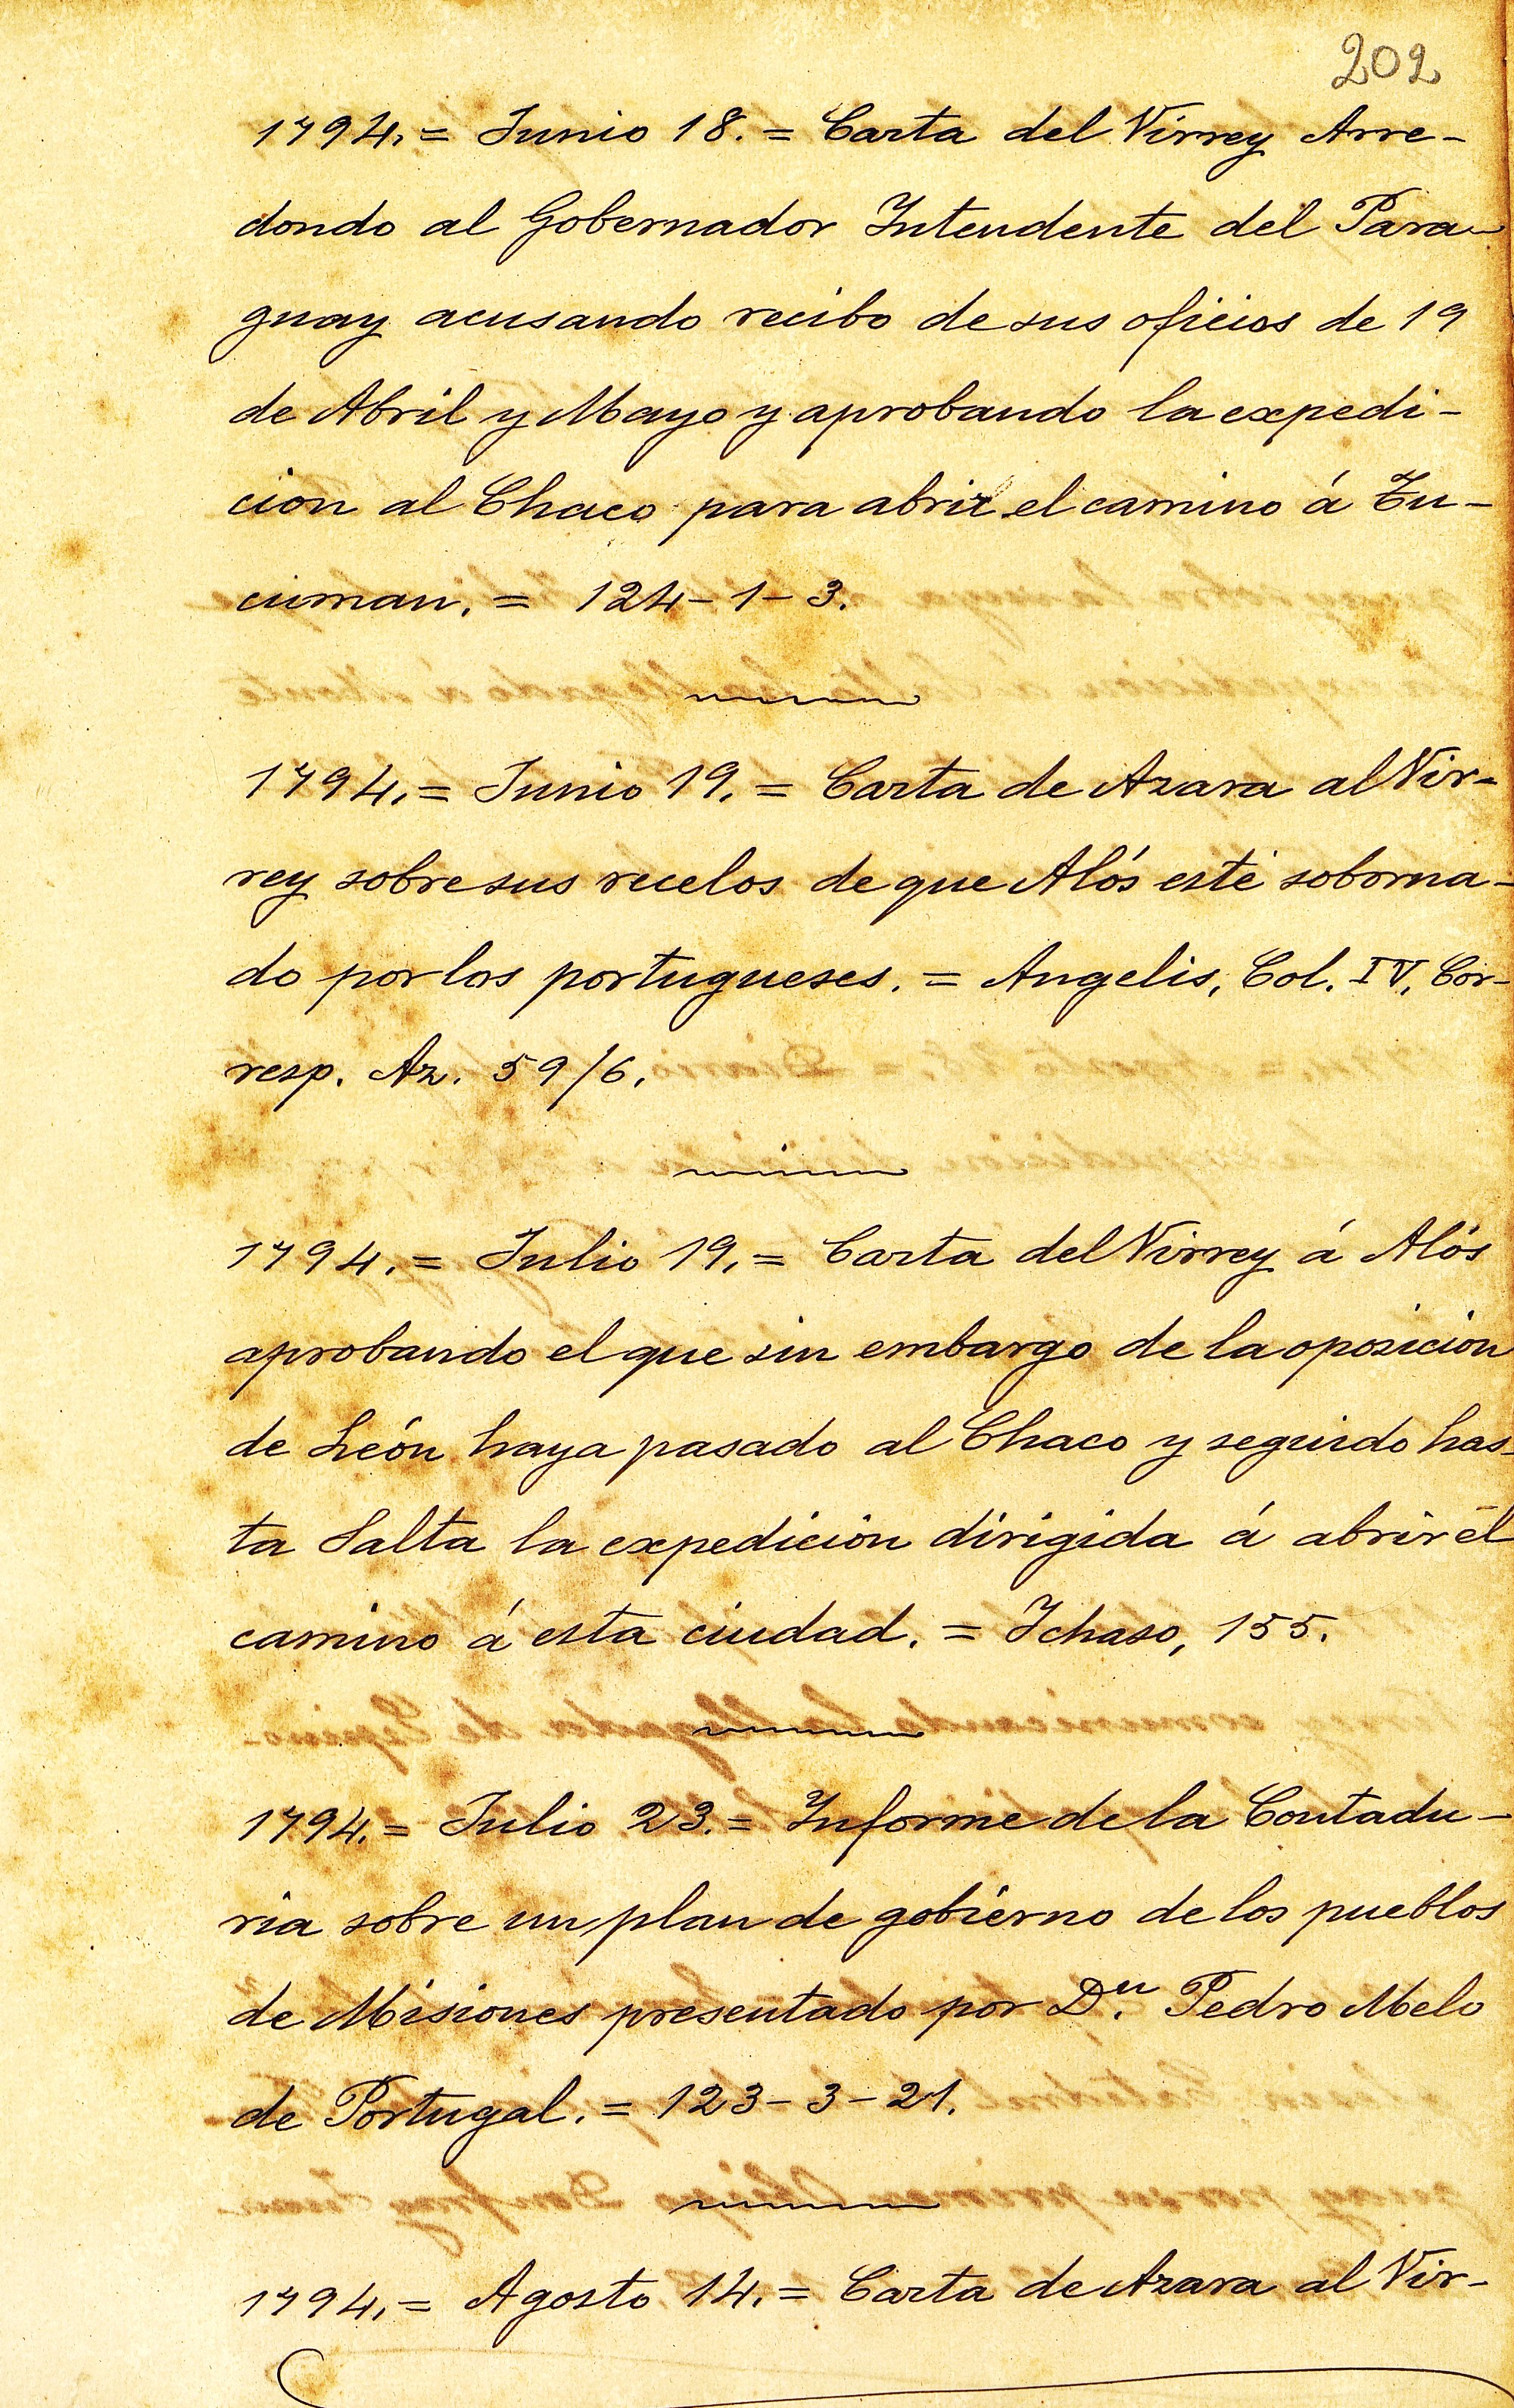 202
1794.= Junio 18.= Carta del Virrey Arre-
dondo al Gobernador Intendente del Para-
guay acusando recibo de sus oficios de 19
de Abril y Mayo y aprobando la expedi-
cion al Chaco para abrir el camino á Tu-
cuman.= 124-1-3.
1794.= Junio 19.= Carta de Azara al Vir-
rey sobre sus recelos de que Alós esté soborna-
do por los portugueses.= Angelis, Col. IV, Cor-
resp. Az. 59/6.
1794.= Julio 19.= Carta del Virrey á Alós
aprobando el que sin embargo de la oposicion
de León haya pasado al Chaco y seguido has-
ta Salta la expedición dirigida á abrir el
camino á esta ciudad.= Ichaso, 155.
1794.= Julio 23.= Informe de la Contadu-
ria sobre un plan de gobierno de los pueblos
de Misiones presentado por Dn. Pedro Melo
de Portugal.= 123-3-21.
1794.= Agosto 14.= Carta de Azara al Vir-